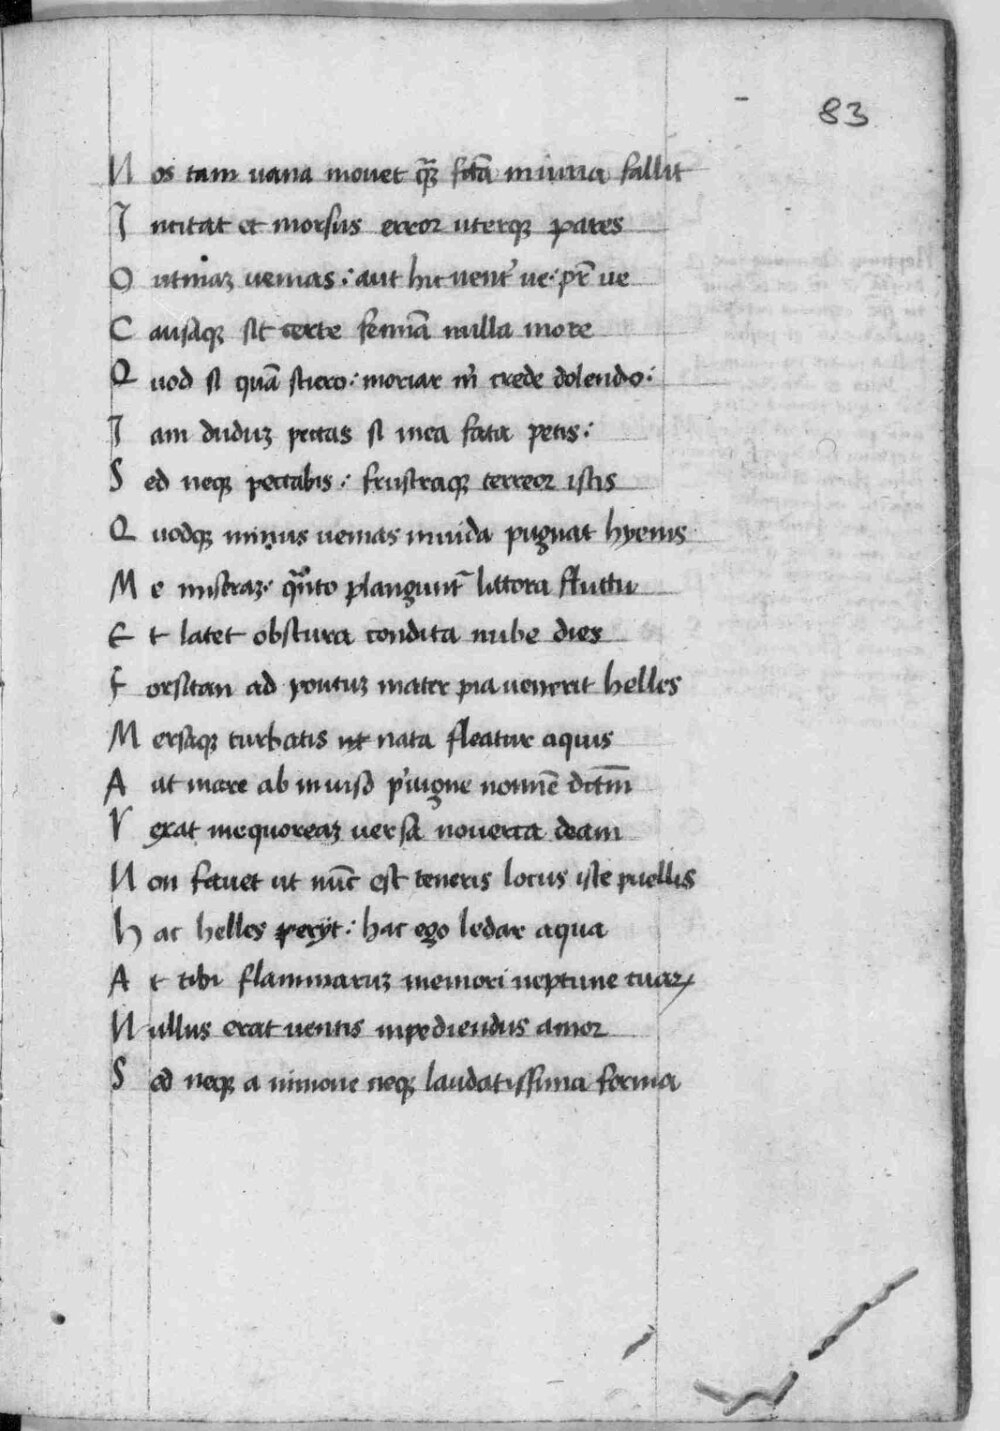 83
Nos tam uana mouet q̃ȝ fc̃ã iniuria fallit
Incitat et morsus error uterqȝ pares
O utinaȝ uenias : aut hic uent᷒ ue · pr̃ ue
Causaqȝ sit certe femĩa nulla more
Quod si quã sciero : moriar m̃ crede dolendo :
Iam duduȝ peccas si mea fata petis :
Sed neqȝ peccabis : frustraqȝ terreor istis
Quodqȝ minus uenias inuida pugnat hyems
Me miseraȝ · q̃nto planguntᷣ littora fluctu
Et latet obscura condita nube dies
Forsitan ad pontuȝ mater pia uenerit helles
Mersaqȝ turbatis ut nata fleatur aquis
Aut mare ab inuiso p'uigne nomiẽ dictũ
Vexat inequoreaȝ uersa nouerca deam
Non fauet ut nũc est teneris locus iste puellis
hac helles peryt : hac ego ledar aqua
At tibi flammaruȝ memori neptune tuaꝝ
Nullus erat uentis inpediendus amor
Sed neqȝ a nimone neqȝ laudatissima forma